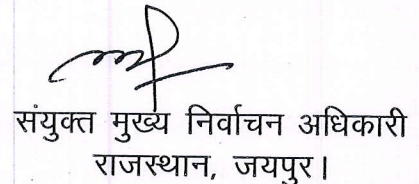 संयुक्त मुख्य निर्वाचन अधिकारी
राजस्थान, जयपुर।